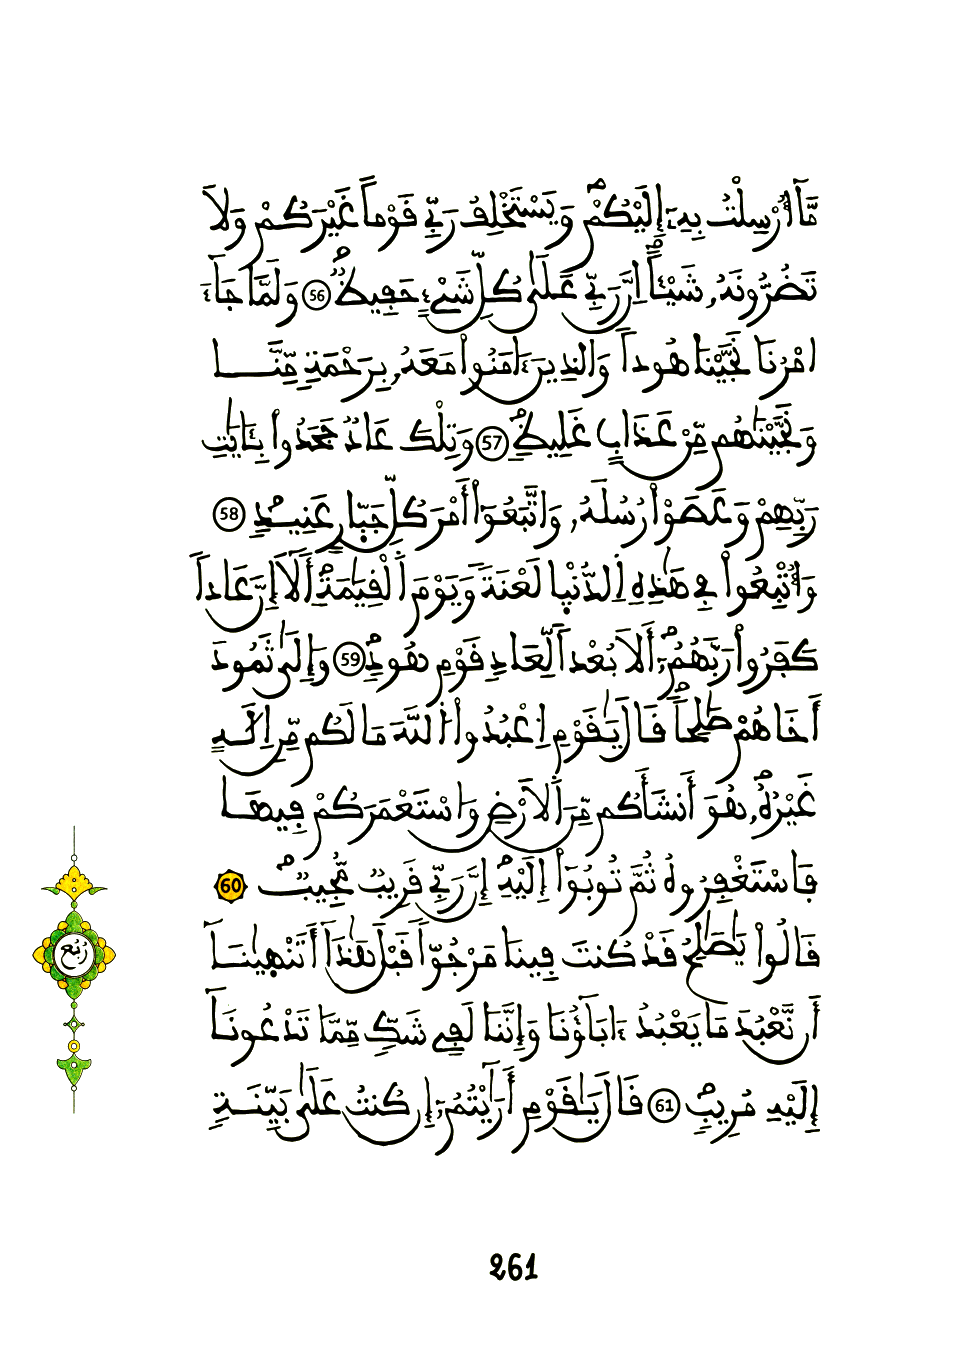 مَّآ أُرْسِلْتُ بِهِۦٓ إِلَيْكُمْۖ وَيَسْتَخْلِفُ رَبِّے قَوْماً غَيْرَكُمْ وَلَا
تَضُرُّونَهُۥ شَيْـٔاًۖ اِنَّ رَبِّے عَلَىٰ كُلِّ شَےْءٍ حَفِيظٞۖ 56 وَلَمَّا جَآءَ
امْرُنَا نَجَّيْنَا هُوداٗ وَالذِينَ ءَامَنُواْ مَعَهُۥ بِرَحْمَةٖ مِّنَّا
وَنَجَّيْنَٰهُم مِّنْ عَذَابٍ غَلِيظٖۖ 57 وَتِلْكَ عَادٞ جَحَدُواْ بِـَٔايَٰتِ
رَبِّهِمْ وَعَصَوْاْ رُسُلَهُۥ وَاتَّبَعُوٓاْ أَمْرَ كُلِّ جَبّ۪ارٍ عَنِيدٖۖ 58
وَأُتْبِعُواْ فِے هَٰذِهِ اِ۬لدُّنْي۪ا لَعْنَةٗ وَيَوْمَ اَ۬لْقِيَٰمَةِۖ أَلَآ إِنَّ عَاداٗ
كَفَرُواْ رَبَّهُمُۥٓۖ أَلَا بُعْداٗ لِّعَادٖ قَوْمِ هُودٖۖ 59 وَإِلَىٰ ثَمُودَ
أَخَاهُمْ صَٰلِحاٗۖ قَالَ يَٰقَوْمِ اِ۟عْبُدُواْ اُ۬للَّهَ مَا لَكُم مِّنِ اِلَٰهٍ
غَيْرُهُۥۖ هُوَ أَنشَأَكُم مِّنَ اَ۬لَارْضِ وَاسْتَعْمَرَكُمْ فِيهَا
فَاسْتَغْفِرُوهُ ثُمَّ تُوبُوٓاْ إِلَيْهِۖ إِنَّ رَبِّے قَرِيبٞ مُّجِيبٞۖ 60
قَالُواْ يَٰصَٰلِحُ قَدْ كُنتَ فِينَا مَرْجُوّاٗ قَبْلَ هَٰذَآ أَتَنْه۪يٰنَآ
أَن نَّعْبُدَ مَا يَعْبُدُ ءَابَآؤُنَا وَإِنَّنَا لَفِے شَكّٖ مِّمَّا تَدْعُونَآ
إِلَيْهِ مُرِيبٖۖ 61 قَالَ يَٰقَوْمِ أَرَٰٓيْتُمُۥٓ إِن كُنتُ عَلَىٰ بَيِّنَةٖ
رُبُع
261